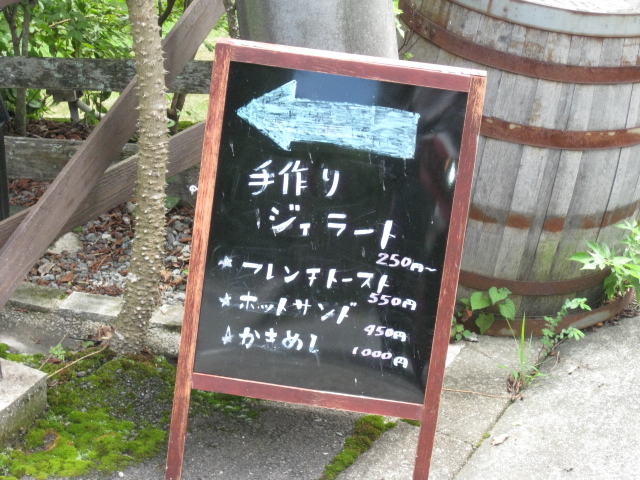 手作り
ジェラート
250円~
★フレンチトースト
550円
★ホットサンド
450円
★かきめし
1000円